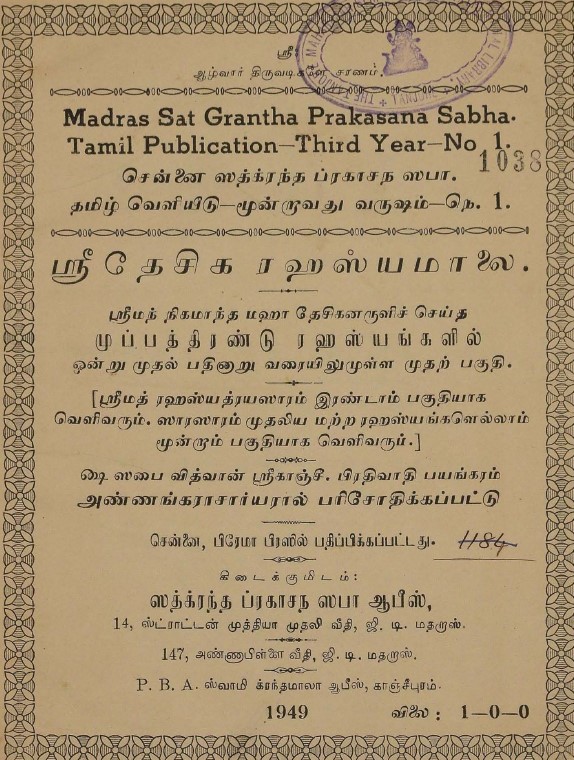 ஸ்ரீ:
ஆழ்வார் திருவடிகளே சரணம்.
Madras Sat Grantha Prakasana Sabha.
Tamil Publication—Third Year—No 1.
1038
சென்னை ஸத்க்ரந்த ப்ரகாசந ஸபா.
தமிழ் வெளியீடு—மூன்றாவது வருஷம்—நெ. 1.
ஸ்ரீ தேசிக ரஹஸ்யமாலை.
ஸ்ரீமந் நிகமாந்த மஹா தேசிகனருளிச் செய்த
முப்பத்திரண்டு ரஹஸ்யங்களில்
ஒன்று முதல் பதினாறு வரையிலுமுள்ள முதற் பகுதி.
[ஸ்ரீமத் ரஹஸ்யத்ரயஸாரம் இரண்டாம் பகுதியாக
வெளிவரும். ஸாரஸாரம் முதலிய மற்ற ரஹஸ்யங்களெல்லாம்
மூன்றாம் பகுதியாக வெளிவரும்.]
ஷை ஸபை வித்வான் ஸ்ரீகாஞ்சீ. பிரதிவாதி பயங்கரம்
அண்ணங்கராசார்யரால் பரிசோதிக்கப்பட்டு
சென்னை, பிரேமா பிரஸில் பதிப்பிக்கப்பட்டது.
1184
கிடைக்குமிடம்:
ஸத்க்ரந்த ப்ரகாசந ஸபா ஆபீஸ்,
14, ஸ்ட்ராட்டன் முத்தியா முதலி வீதி, ஜி. டி. மதறாஸ்.
147, அண்ணாபிள்ளை வீதி, ஜி. டி. மதறாஸ்.
P. B. A. ஸ்வாமி க்ரந்தமாலா ஆபீஸ், காஞ்சீபுரம்.
1949 விலை : 1—0—0